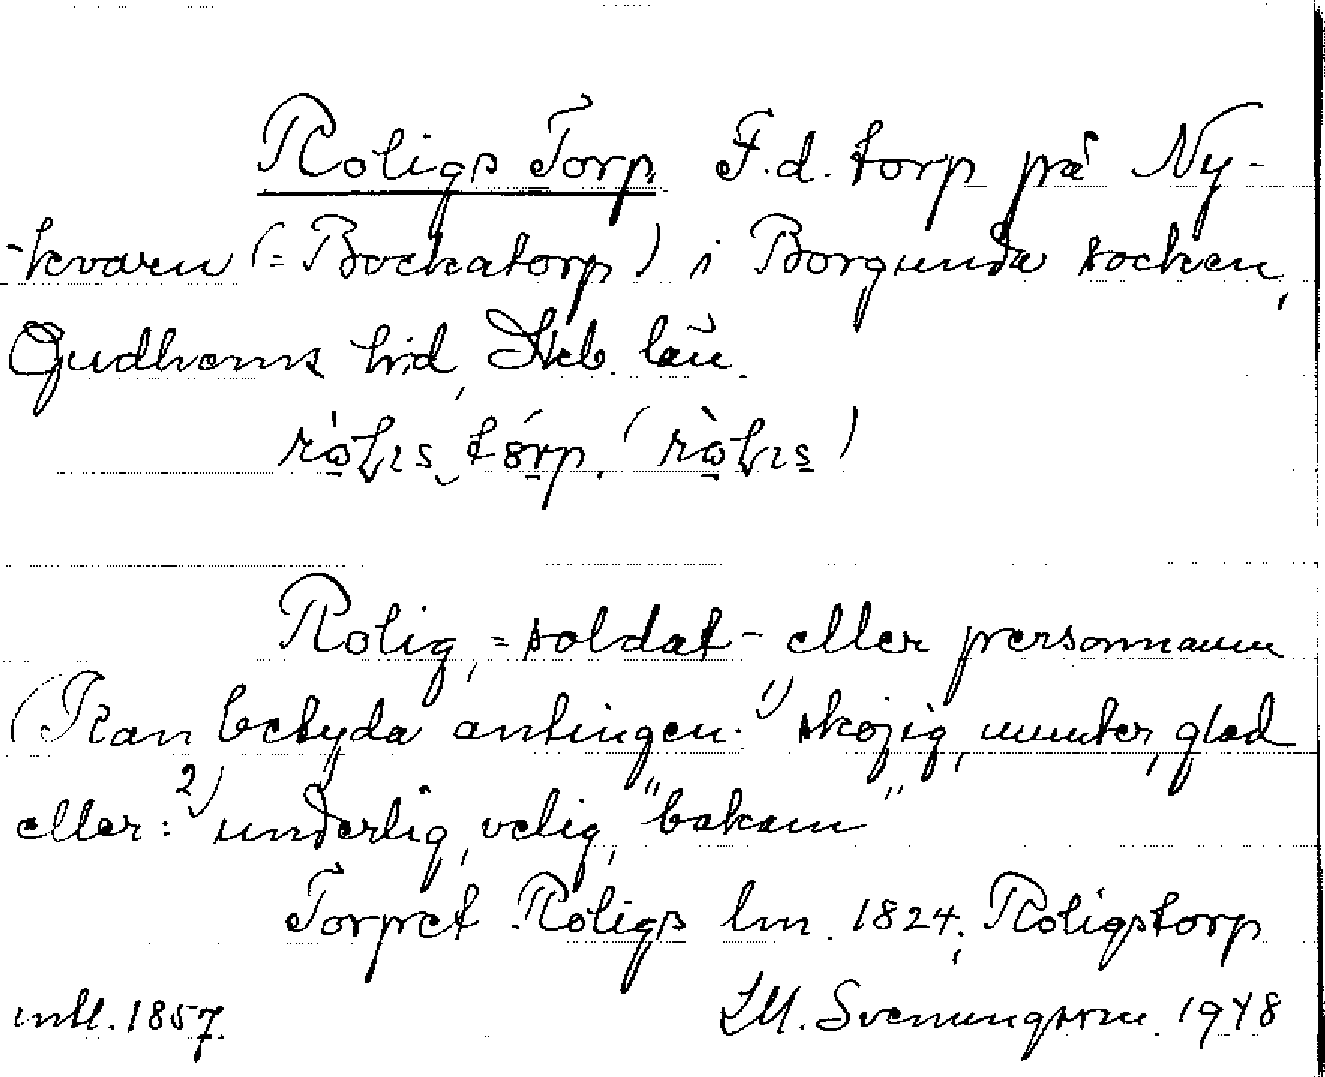 Roligs Torp. F.d. torp på Ny-
-kvarn (= Bockatorp) i Borgunda socken,
Gudhems hd, Skb. län.
Rolig, = soldat- eller personnamn
(Kan betyda antingen: 1) skojig, munter, glad
eller: 2) underlig, velig, "bakom"
Torpet Roligs lm. 1824; Roligstorp
mtl. 1857. LM. Svenungsson. 1948